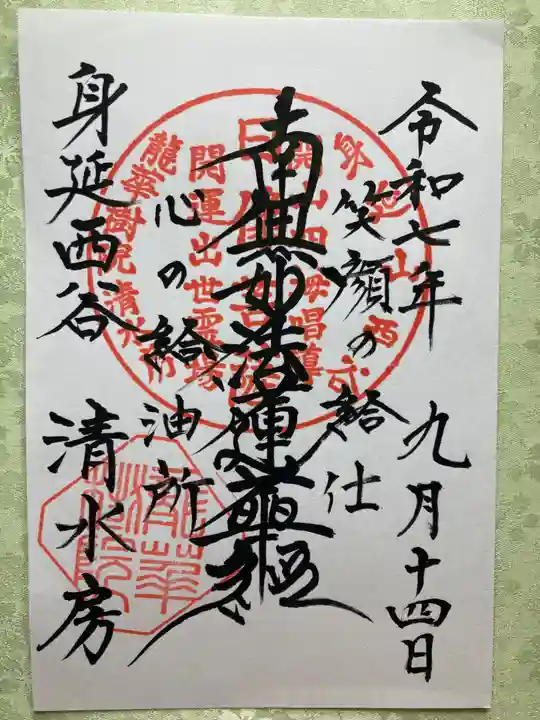 令和七年 九月十四日
笑顔の給仕
南無妙法蓮華経
心の給油所
身延西谷 清水房
開運出世霊場
龍華樹院清水房